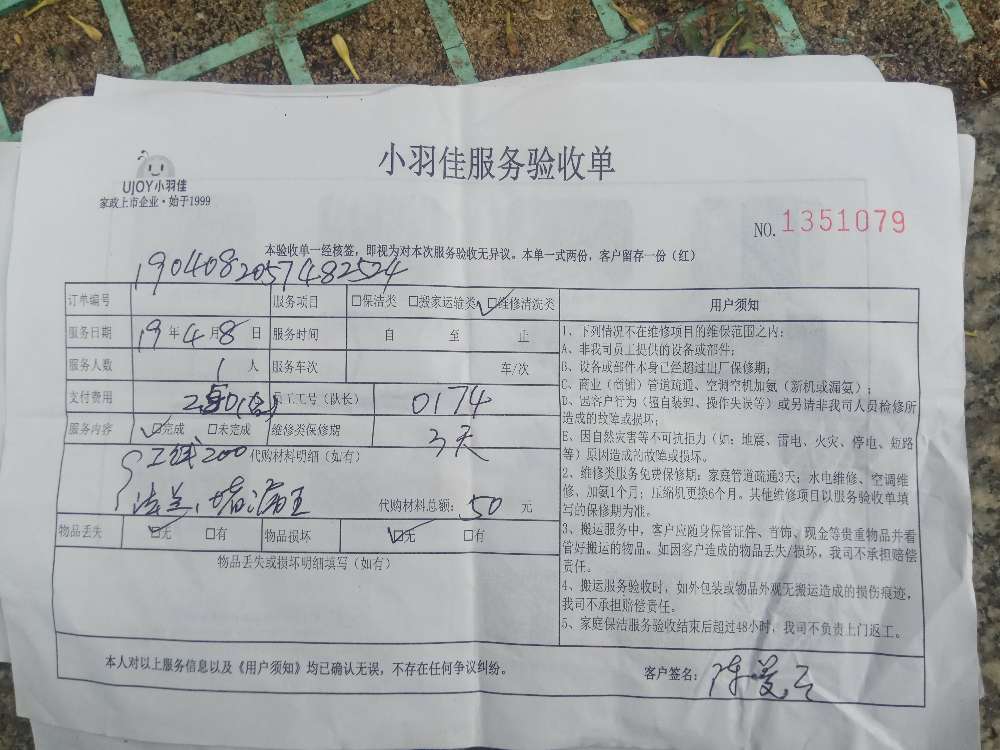 小羽佳服务验收单
UJOY小羽佳
家政上市企业·始于1999
NO. 1351079
本验收单一经核签，即视为对本次服务验收无异议。本单一式两份，客户留存一份（红）
1904082057482524
订单编号 服务项目 □保洁类 □搬家运输类 ☑维修清洗类
服务日期 19年4月8日 服务时间 自 至 止
服务人数 1人 服务车次 车/次
支付费用 250 员工工号（队长） 0174
服务内容 ☑完成 □未完成 维修类保修期 3天
工钱200 代购材料明细（如有）
法兰、堵漏王 代购材料总额：50元
物品丢失 ☑无 □有 物品损坏 ☑无 □有
物品丢失或损坏明细填写（如有）
用户须知
1、下列情况不在维修项目的维保范围之内：
A、非我司员工提供的设备或部件；
B、设备或部件本身已经超过出厂保修期；
C、商业（商铺）管道疏通、空调空机加氨（新机或漏氨）；
D、因客户行为（擅自装卸、操作失误等）或另请非我司人员检修所
造成的故障或损坏；
E、因自然灾害等不可抗拒力（如：地震、雷电、火灾、停电、短路
等）原因造成的故障或损坏。
2、维修类服务免费保修期：家庭管道疏通3天；水电维修、空调维
修、加氨1个月；压缩机更换6个月。其他维修项目以服务验收单填
写的保修期为准。
3、搬运服务中，客户应随身保管证件、首饰、现金等贵重物品并看
管好搬运的物品。如因客户造成的物品丢失/损坏，我司不承担赔偿
责任。
4、搬运服务验收时，如外包装或物品外观无搬运造成的损伤痕迹，
我司不承担赔偿责任。
5、家庭保洁服务验收结束后超过48小时，我司不负责上门返工。
本人对以上服务信息以及《用户须知》均已确认无误，不存在任何争议纠纷。
客户签名：陈